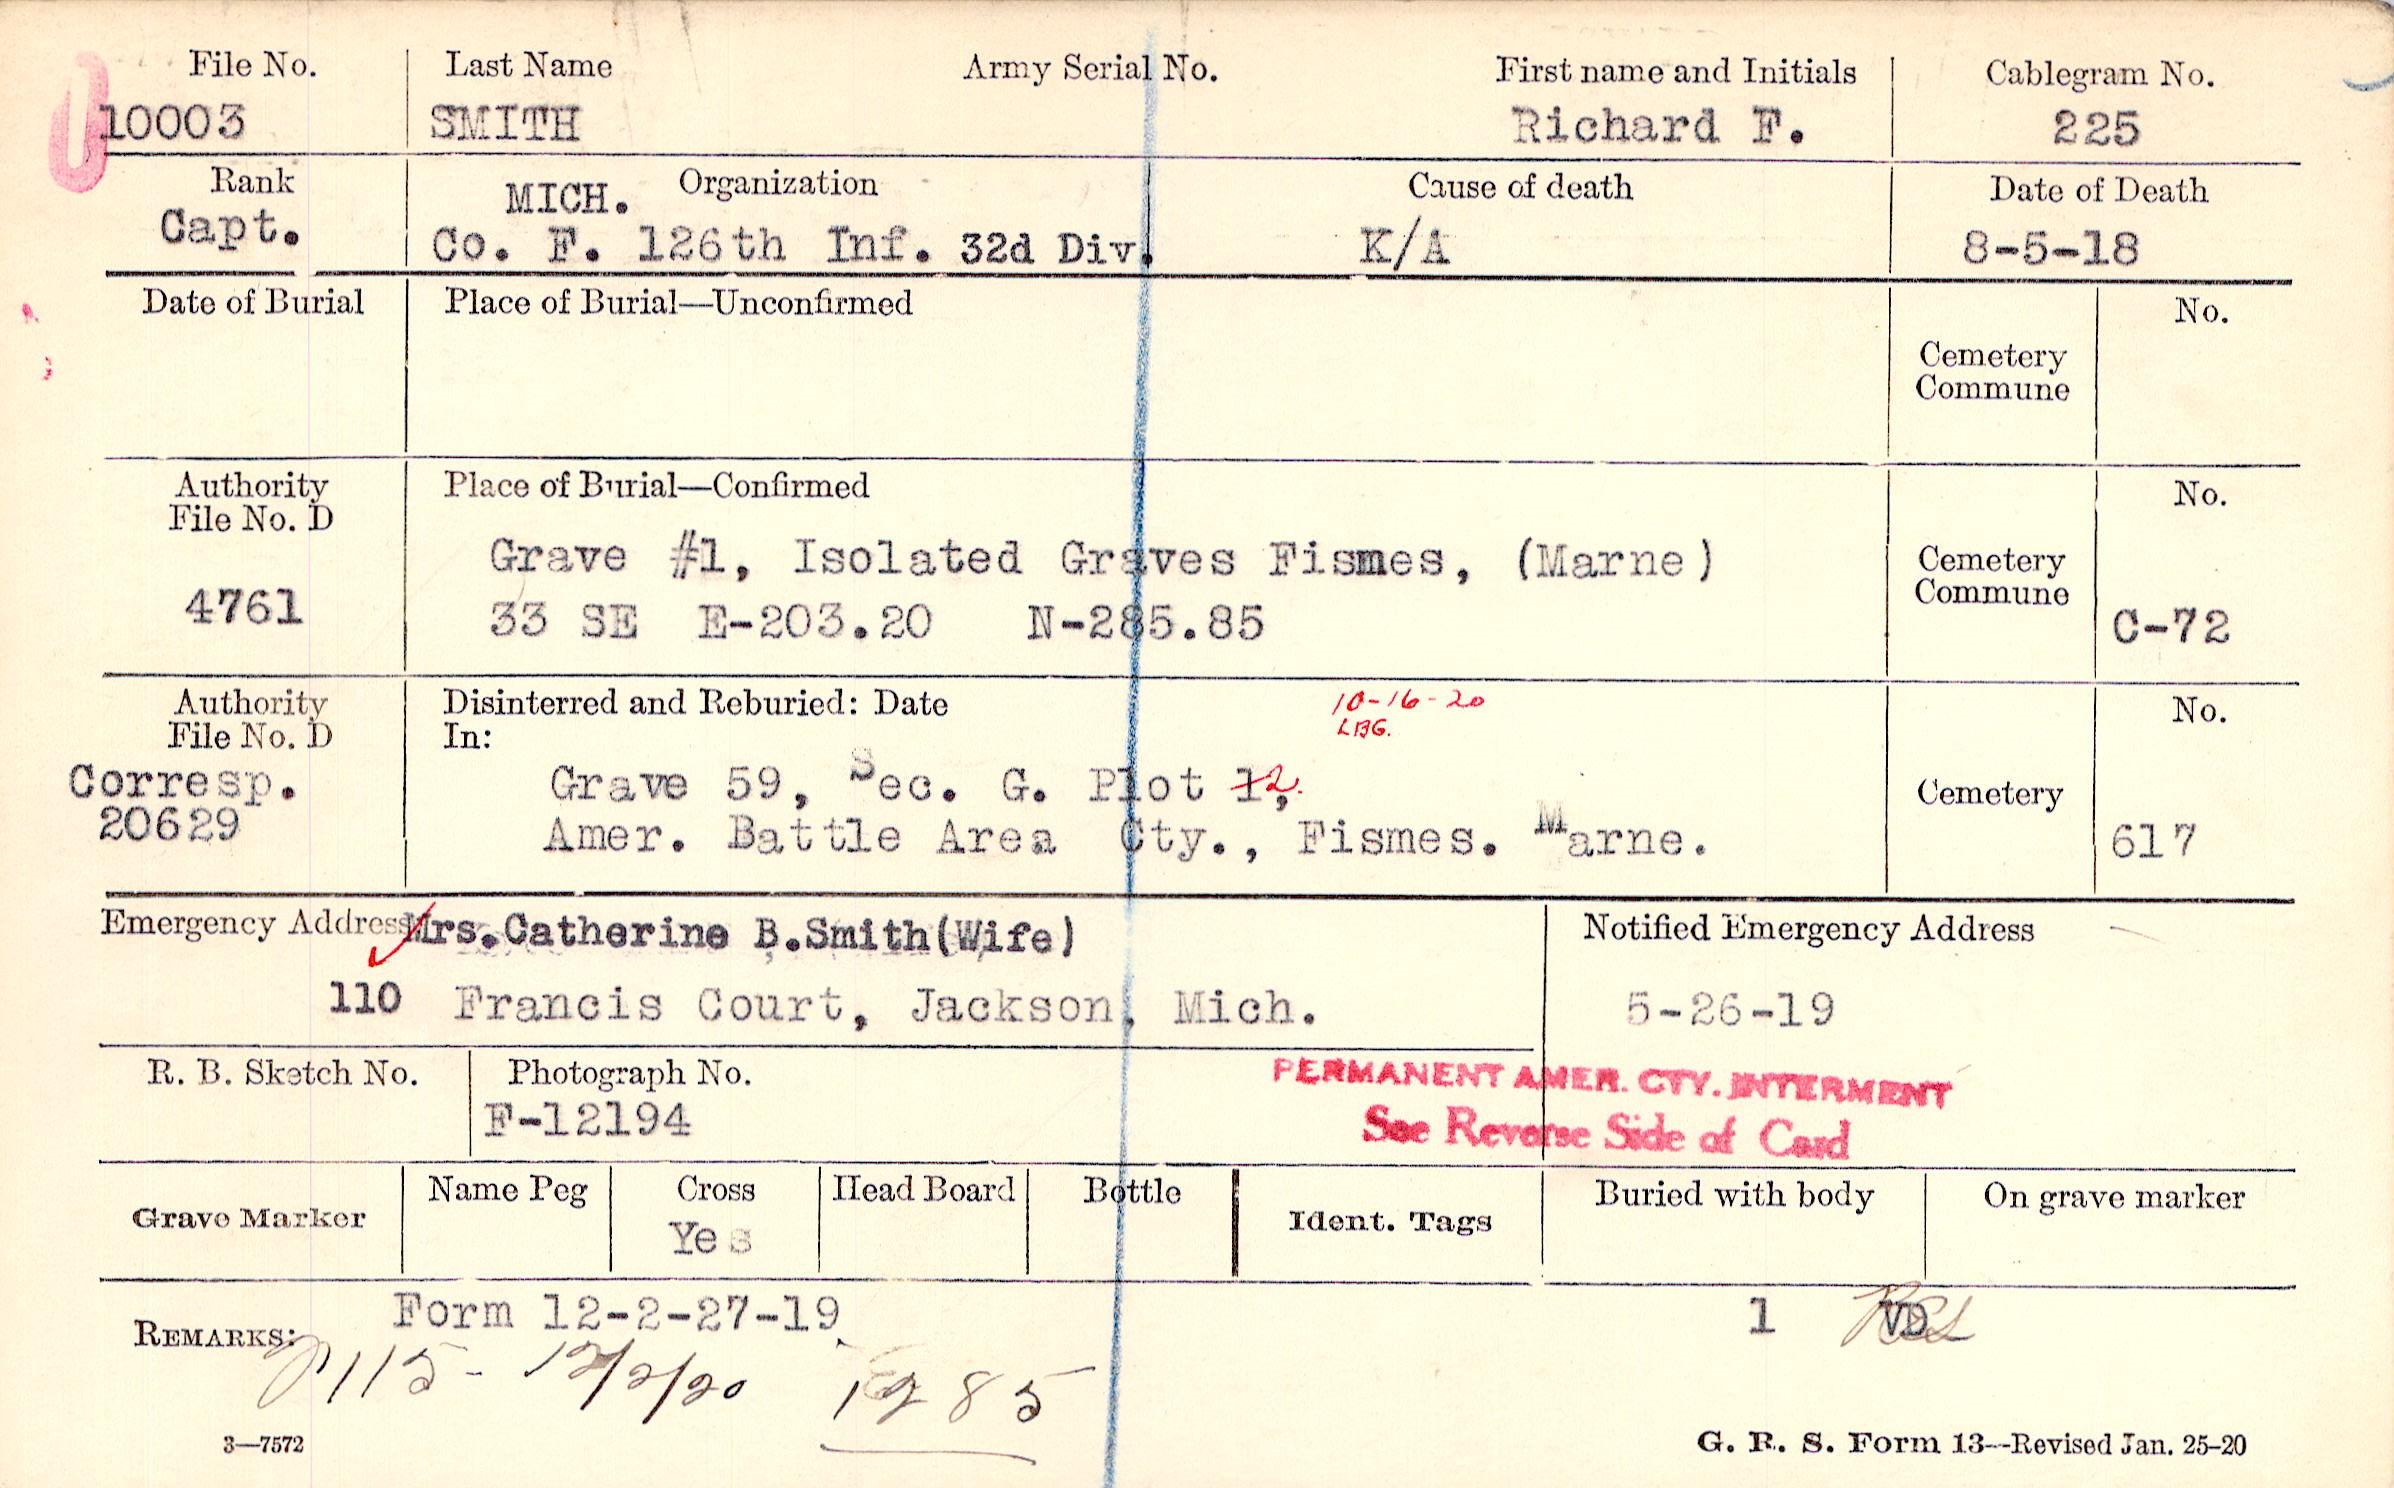 File No. Last Name Army Serial No. First name and Initials Cablegram No.
10003 SMITH Richard F. 225
Rank MICH. Organization Cause of death Date of Death
Capt. Co. F. 126th Inf. 32d Div. K/A 8-5-18
Date of Burial Place of Burial—Unconfirmed No.
Cemetery
Commune
Authority Place of Burial—Confirmed No.
File No. D
Grave #1, Isolated Graves Fismes, (Marne) Cemetery
4761 33 SE E-203.20 N-285.85 Commune C-72
Authority Disinterred and Reburied: Date 10-16-20 No.
File No. D In: LBG.
Corresp. Grave 59, Sec. G. Plot 1, 2. Cemetery
20629 Amer. Battle Area Cty., Fismes. Marne. 617
Emergency Address Mrs.Catherine B.Smith(Wife) Notified Emergency Address
110 Francis Court, Jackson, Mich. 5-26-19
R. B. Sketch No. Photograph No. PERMANENT AMER. CTY. INTERMENT
F-12194 See Reverse Side of Card
Grave Marker Name Peg Cross Head Board Bottle Ident. Tags Buried with body On grave marker
Yes
REMARKS: Form 12-2-27-19 1 VD
115- 12/2/20 1285
3—7572 G. R. S. Form 13—Revised Jan. 25-20